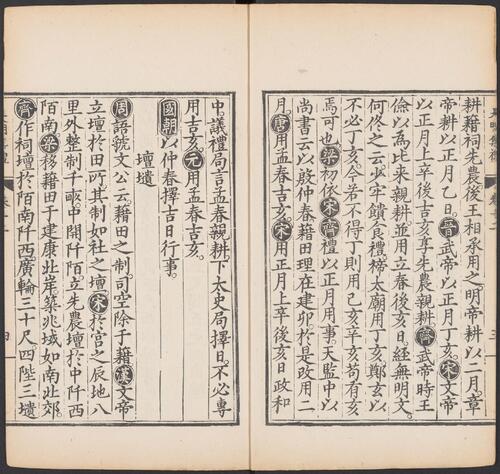 耕籍祠先農後王相承用之明帝耕以二月章
帝耕以正月乙亥晉武帝以正月丁亥宋文帝
以正月上辛後吉亥享先農親耕齊武帝時王
儉以為比來親耕並用立春後亥日經無明文
何佟之云少牢饋食禮禘太廟用丁亥鄭玄以
不必丁亥今若不得丁則用己亥辛亥苟有亥
焉可也梁初依宋齊禮以正月用事天監中
尚書云以啟仲春藉田理在建卯於是改用二
月唐用孟春吉亥宋用正月上辛後亥日政和
中議禮局言孟春親耕下太史局擇日不必專
用吉亥元用孟春吉亥
國朝以仲春擇吉日行事
壇壝
周語虢文公云藉田之制司空除于籍漢文帝
立壇於田所其制如社之壇宋於宮之辰地八
里外整制千畝中開阡陌立先農壇於中阡西
陌南梁移籍田于建康北岸築兆域如南北郊
齊作祠壇於陌南阡西廣輪三十尺四陛三壝